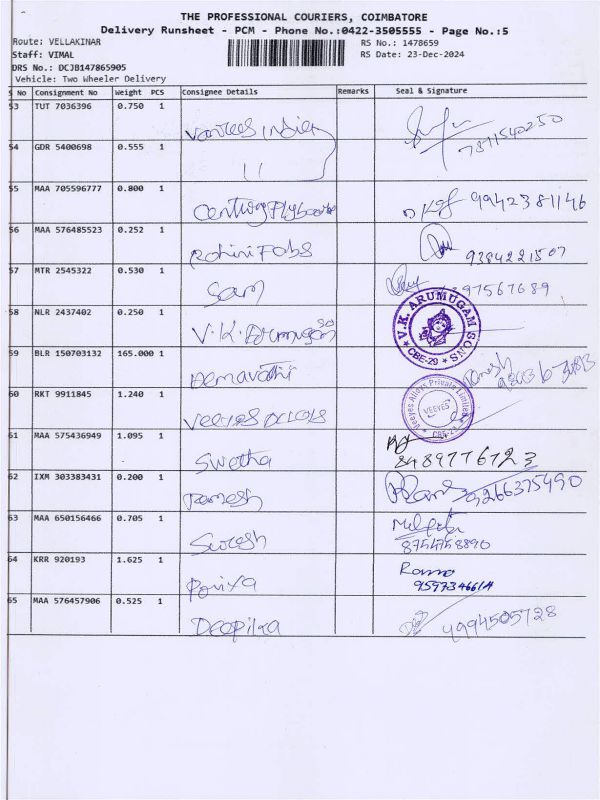 THE PROFESSIONAL COURIERS, COIMBATORE
Delivery Runsheet - PCM - Phone No.:0422-3505555 - Page No.:5
Route: VELLAKINAR
RS No.: 1478659
Staff: VIMAL
RS Date: 23-Dec-2024
DRS No.: DCJB147865905
Vehicle: Two Wheeler Delivery
S No Consignment No Weight PCS Consignee Details Remarks Seal & Signature
53 TUT 7036396 0.750 1 7871540250
54 GDR 5400698 0.555 1 11
55 MAA 705596777 0.800 1 9942381146
56 MAA 576485523 0.252 1 Rohini Fobs 9384221507
57 MTR 2545322 0.530 1 Sam 97567689
58 NLR 2437402 0.250 1 V.K. Arumugam
V.K. ARUMUGAM SONS
CBE-29
59 BLR 150703132 165.000 1
60 RKT 9911845 1.240 1 Veeyes
Veeyes Alloys Private Limited
VEEYES
CBE-29
61 MAA 575436949 1.095 1 Swetha 8489776723
62 IXM 303383431 0.200 1 Ramesh 9266375490
63 MAA 650156466 0.705 1 Suresh 8754758890
64 KRR 920193 1.625 1 Rama
65 MAA 576457906 0.525 1 Deepika 4994505728